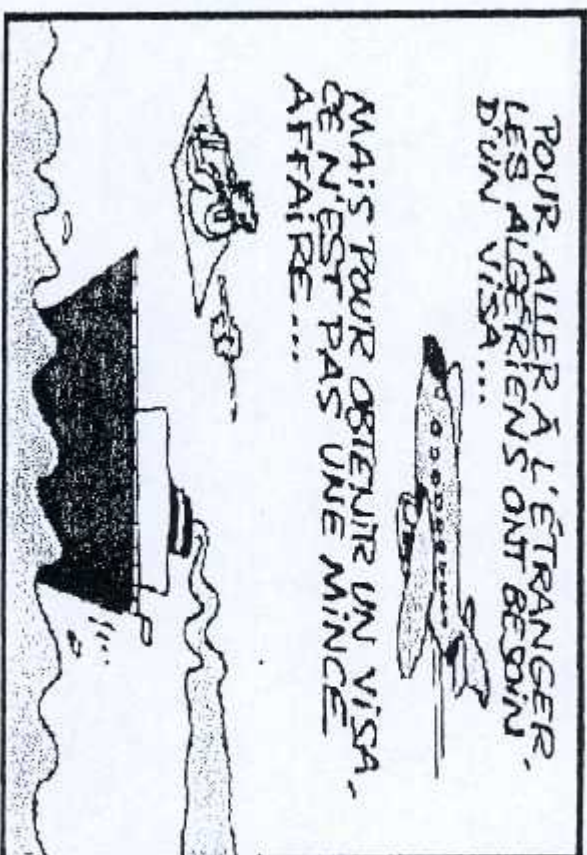 POUR ALLER À L'ÉTRANGER,
LES ALGÉRIENS ONT BESOIN
D'UN VISA...
MAIS POUR OBTENIR UN VISA,
CE N'EST PAS UNE MINCE
AFFAIRE...